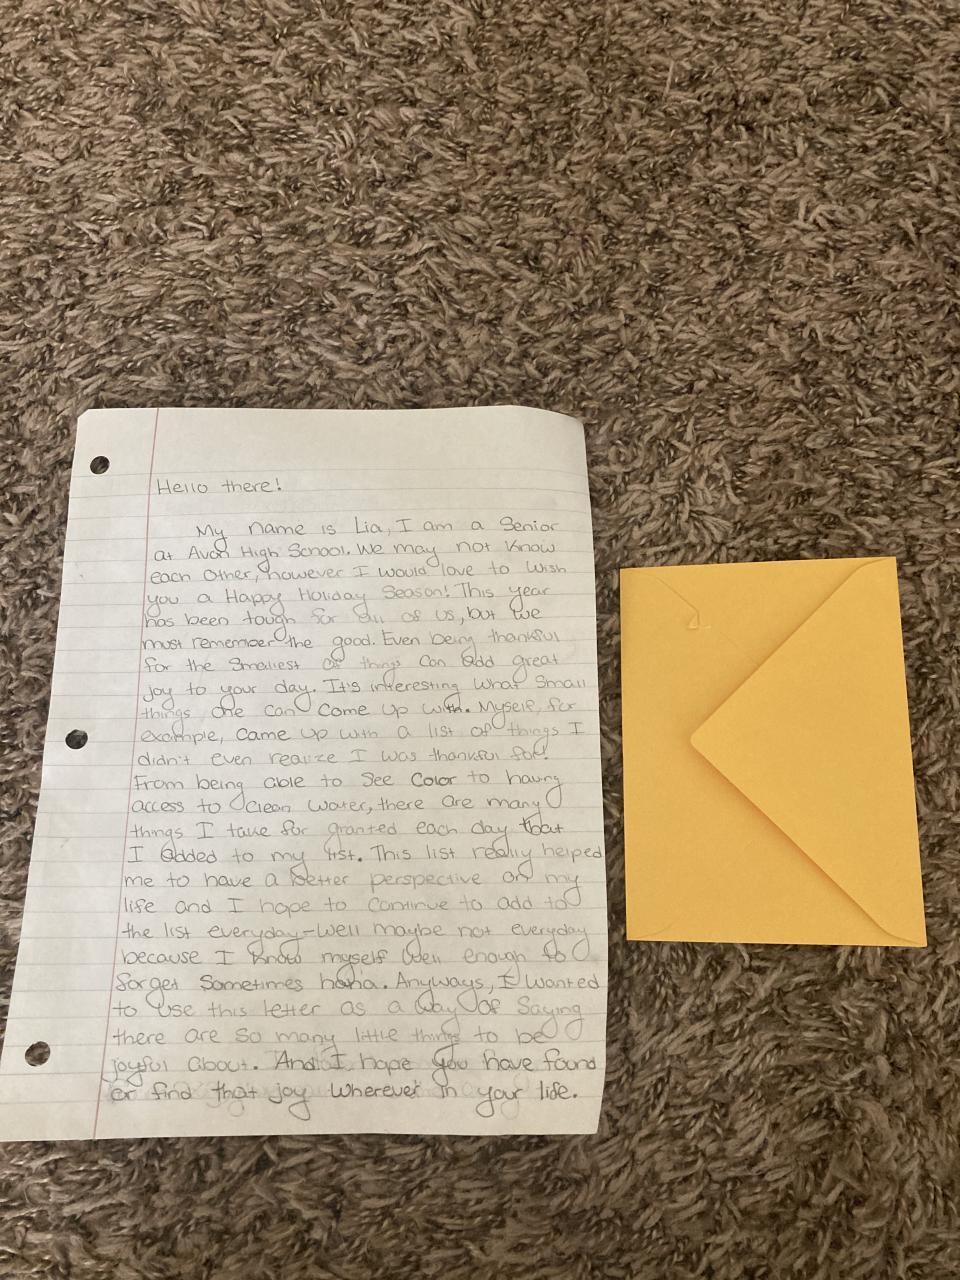 Hello there!
My name is Lia, I am a Senior
at Avon High School. We may not know
each other, however I would love to wish
you a Happy Holiday Season! This year
has been tough for all of us, but we
must remember the good. Even being thankful
for the smallest of things can add great
joy to your day. It's interesting what small
things one can come up with. Myself, for
example, came up with a list of things I
didn't even realize I was thankful for!
From being able to see color to having
access to clean water, there are many
things I take for granted each day that
I added to my list. This list really helped
me to have a better perspective on my
life and I hope to continue to add to
the list everyday-well maybe not everyday
because I know myself well enough to
forget sometimes haha. Anyways, I wanted
to use this letter as a way of saying
there are so many little things to be
joyful about. And I hope you have found
or find that joy wherever in your life.